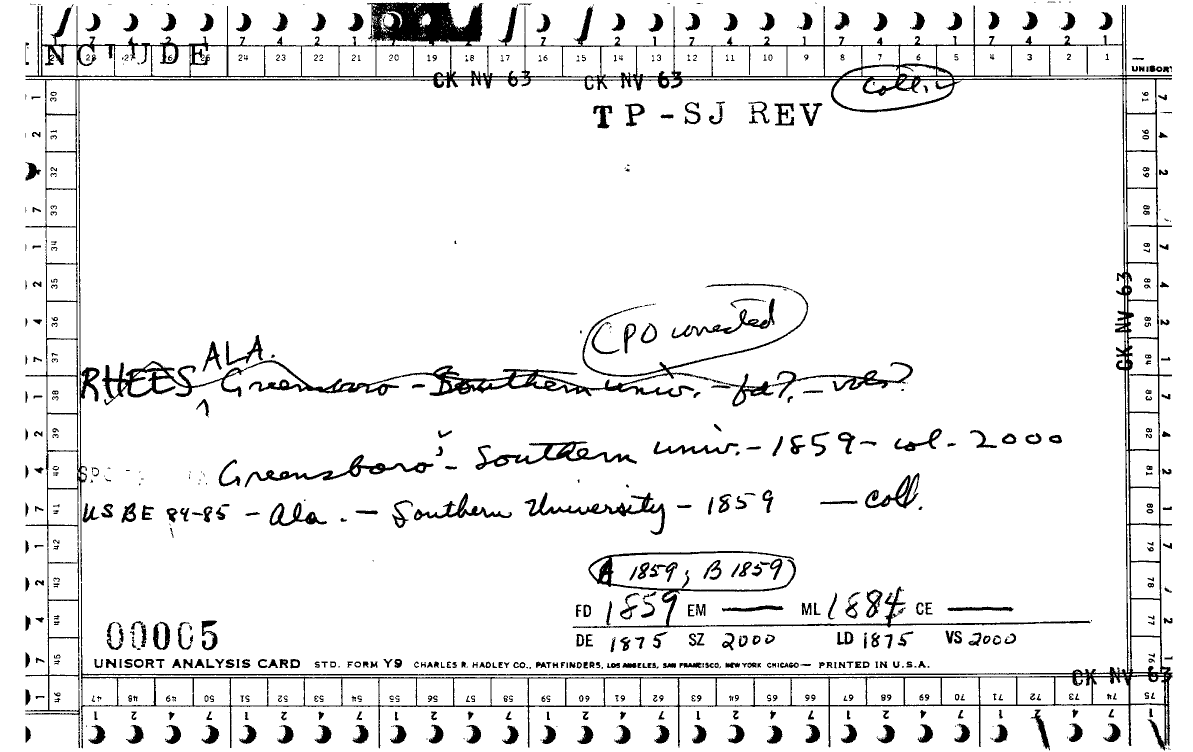 INCLUDE
7 4 2 1 7 4 2 1 7 4 2 1 7 4 2 1
24 23 22 21 20 19 18 17 16 15 14 13 12 11 10 9 8 7 6 5 4 3 2 1
UNISORT
CK NV 63 CK NV 63
Collin
TP-SJ REV
CK NV 63
CPO corrected
ALA.
RHEES Greensboro - Southern Univ. - fd?, - vols?
Greensboro - Southern Univ. - 1859 - col - 2000
US BE 84-85 - Ala. - Southern University - 1859 - coll.
A 1859; B 1859
FD 1859 EM — ML 1884 CE —
DE 1875 SZ 2000 LD 1875 VS 2000
00005
UNISORT ANALYSIS CARD STD. FORM Y9 CHARLES R. HADLEY CO., PATHFINDERS, LOS ANGELES, SAN FRANCISCO, NEW YORK CHICAGO — PRINTED IN U.S.A.
CK NV 63
47 48 49 50 51 52 53 54 55 56 57 58 59 60 61 62 63 64 65 66 67 68 69 70 71 72 73 74 75
1 2 4 7 1 2 4 7 1 2 4 7 1 2 4 7 1 2 4 7 1 2 4 7 1 2 4 7 1